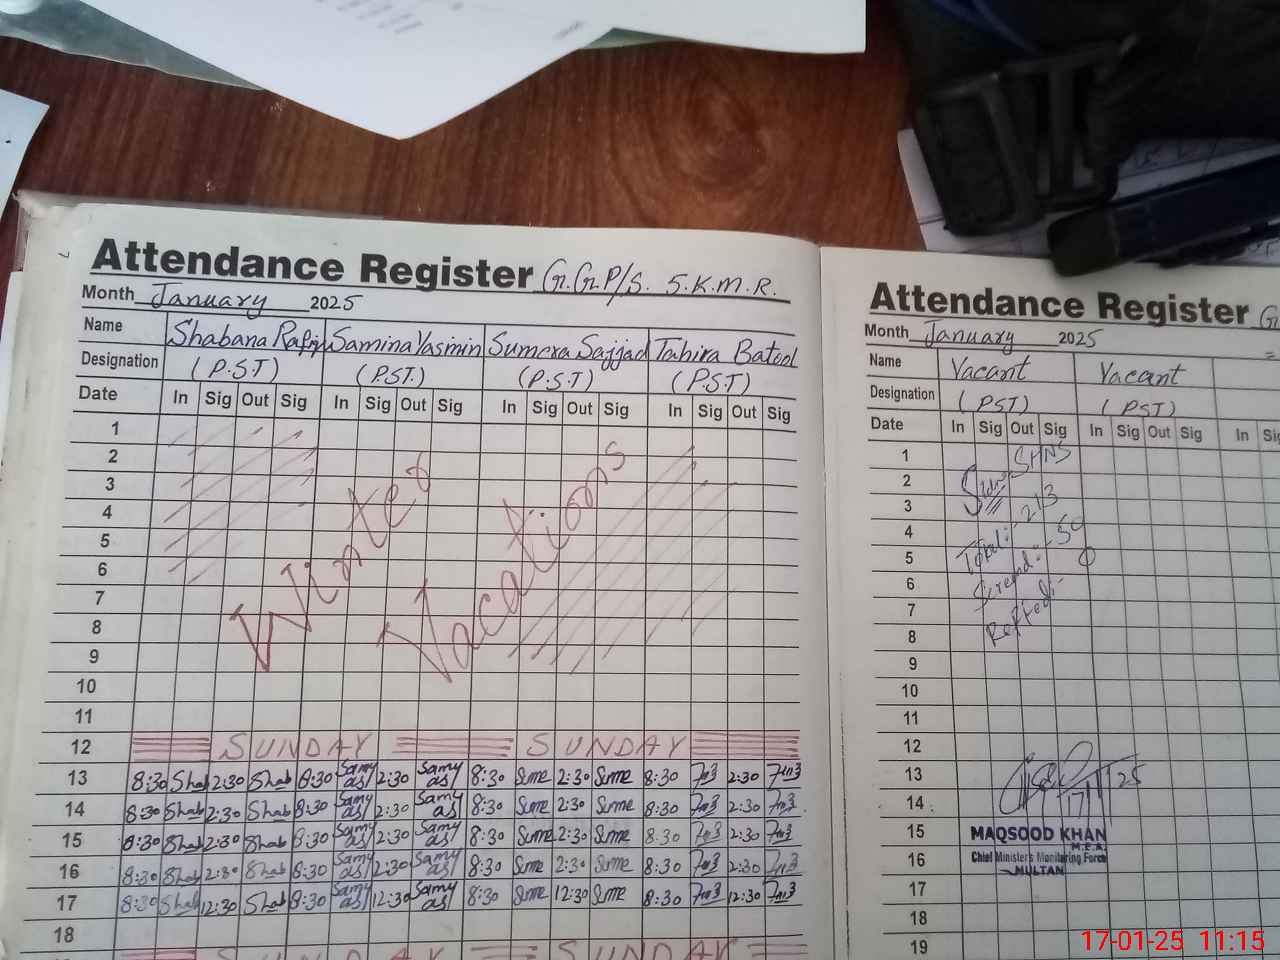 Attendance Register G.G.P/S. S.K.M.R.
Month January 2025
Name Shabana Rafiq Samina Yasmin Sumera Sajjad Tahira Batool
Designation (P.S.T) (P.S.T.) (P.S.T) (P.S.T)
Date In Sig Out Sig In Sig Out Sig In Sig Out Sig In Sig Out Sig
1
2
3
4
5
6
7
8
9
10
11
Winter Vacations
12 SUNDAY SUNDAY
13 8:30 Shab 2:30 Shab 8:30 Samy as 2:30 Samy as 8:30 Sume 2:30 Sume 8:30 2:30
14 8:30 Shab 2:30 Shab 8:30 Samy as 2:30 Samy as 8:30 Sume 2:30 Sume 8:30 2:30
15 8:30 Shab 2:30 Shab 8:30 Samy as 2:30 Samy as 8:30 Sume 2:30 Sume 8:30 2:30
16 8:30 Shab 2:30 Shab 8:30 Samy as 2:30 Samy as 8:30 Sume 2:30 Sume 8:30 2:30
17 8:30 Shab 12:30 Shab 8:30 Samy as 12:30 Samy as 8:30 Sume 12:30 Sume 8:30 12:30
18
SUNDAY SUNDAY
Attendance Register G
Month January 2025
Name Vacant Vacant
Designation (PST) (PST)
Date In Sig Out Sig In Sig Out Sig In Sig
1
2
3
4
5
6
7
8
9
10
11
12
13
14
15
16
17
18
19
SHNS
Total:- 213
50
0
17/1/25
MAQSOOD KHAN
M.E.A.
Chief Minister's Monitoring Force
MULTAN
17-01-25 11:15